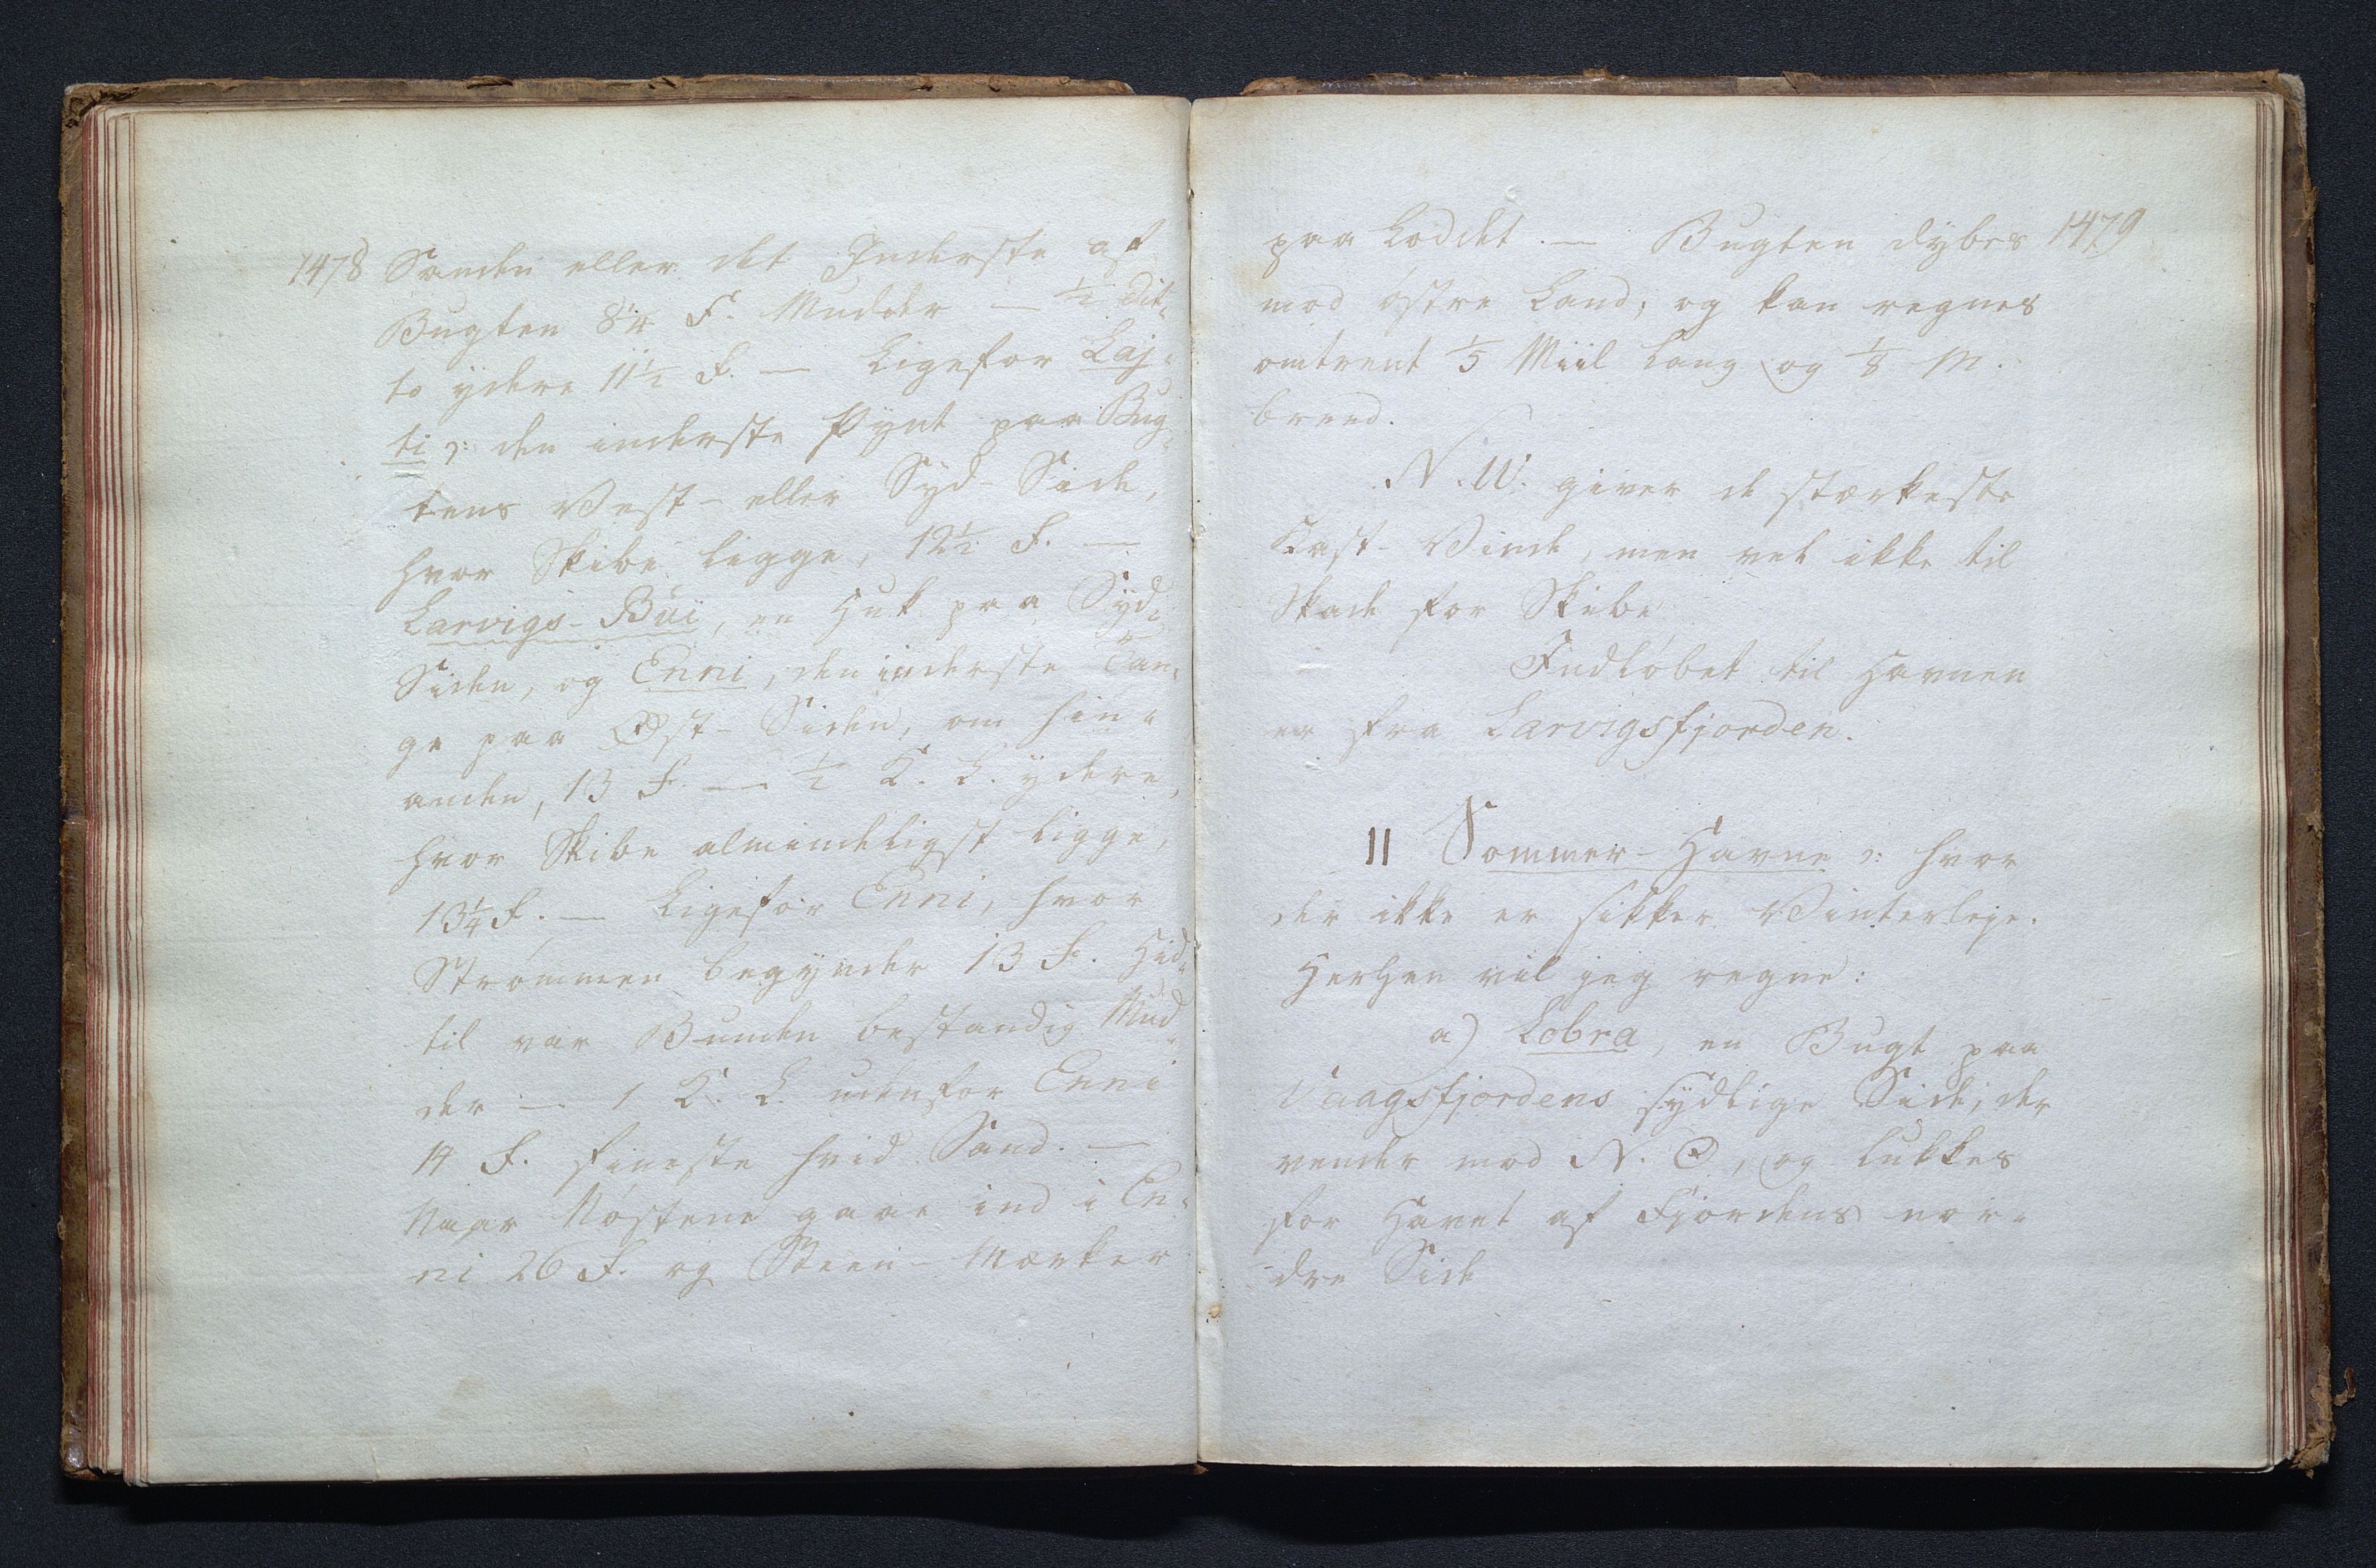 1478 Sanden eller det Inderste af
Bugten 8¼ F. Mudder — ½ dit-
to ydere 11½ F. — Ligefor Laj-
ti ɔ: den inderste Pynt paa Bug-
tens Vest- eller Syd-Side,
hvor Skibe ligge, 12½ F. —
Larvigs-Bui, en Huk paa Syd-
Siden, og Enni, den inderste Tan-
ge paa Øst-Siden, om hin-
anden, 13 F. — ½ K. L. ydere,
hvor Skibe almindeligst ligge,
13¼ F. — Ligefor Enni, hvor
Strømmen begynder 13 F. Hid-
til var Bunden bestandig Mud-
der — 1 K. L. udenfor Enni
14 F. fineste hvid Sand. —
Naar Nøstene gaae ind i En-
ni 26 F. og Steen-Mærker
paa Loddet. — Bugten dybes 1479
mod østre Land, og kan regnes
omtrent 1/5 Miil lang og 1/8 M.
breed.
N. W. giver de stærkeste
Kast-Vinde, men vel ikke til
Skade for Skibe
Indløbet til Havnen
er fra Larvigsfjorden.
II Sommer-Havne ɔ: hvor
der ikke er sikker Vinterleje.
Herhen vil jeg regne:
a) Lobra, en Bugt paa
Vaagsfjordens sydlige Side, der
vender mod N. O., og lukkes
for Havet af Fjordens nor-
dre Side